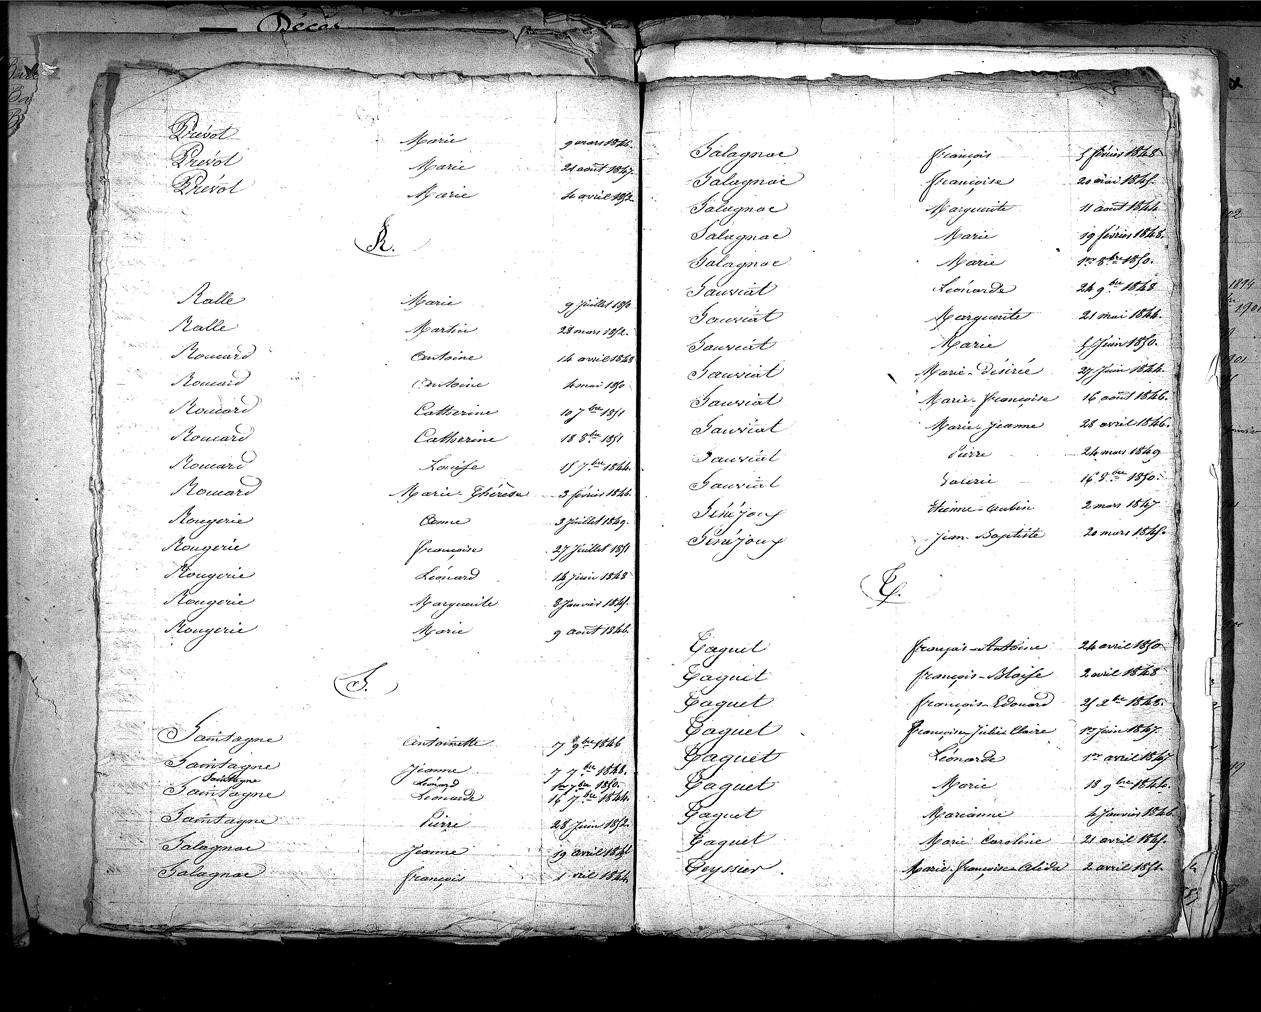 Décès
Prévot Marie 9 mars 1846.
Prévot Marie 21 août 1847.
Prévot Marie 4 avril 1852.
R.
Ralle Marie 9 juillet 1850
Ralle Martin 28 mars 1852.
Roucard Antoine 14 avril 1848
Roucard Antoine 4 mai 1850
Roucard Catherine 10 7bre 1851
Roucard Catherine 18 8bre 1851
Roucard Louise 15 7bre 1844.
Roucard Marie-Thérèse 3 février 1846.
Rougerie Anne 3 juillet 1849.
Rougerie françoise 27 juillet 1851
Rougerie Léonard 14 juin 1848
Rougerie Marguerite 8 janvier 1845.
Rougerie Marie 9 août 1846.
S.
Saintagne Antoinette 7 9bre 1846
Saintagne Jeanne 7 7bre 1848.
Saintagne Léonard 1er 7bre 1850.
Saintagne Léonarde 16 7bre 1844.
Saintagne Pierre 28 juin 1852.
Salagnac Jeanne 19 avril 1845
Salagnac françois 1 avril 1844.
Salagnac françois 5 février 1848
Salagnac françoise 20 mai 1845.
Salagnac Marguerite 11 août 1844
Salagnac Marie 19 février 1848.
Salagnac Marie 1er 8bre 1850.
Sauviat Léonarde 24 9bre 1848
Sauviat Marguerite 21 mai 1844.
Sauviat Marie 5 juin 1850.
Sauviat Marie-Désirée 27 juin 1844.
Sauviat Marie-françoise 16 août 1846.
Sauviat Marie-jeanne 28 avril 1846.
Sauviat Pierre 24 mars 1849
Sauviat Valérie 16 8bre 1850.
Sénéjoux Etienne-Aubin 2 mars 1847
Sénéjoux Jean-Baptiste 20 mars 1845.
T.
Taquet françois-Antoine 24 avril 1850
Taquet françois-Blaise 2 avril 1848
Taquet françois-Edouard 25 Xbre 1848.
Taquet françoise-Julie-Claire 1er juin 1847.
Taquet Léonarde 1er avril 1847
Taquet Marie 18 9bre 1844.
Taquet Marianne 4 janvier 1846
Taquet Marie Caroline 21 avril 1845.
Teyssier Marie-françoise-Alida 2 avril 1851.